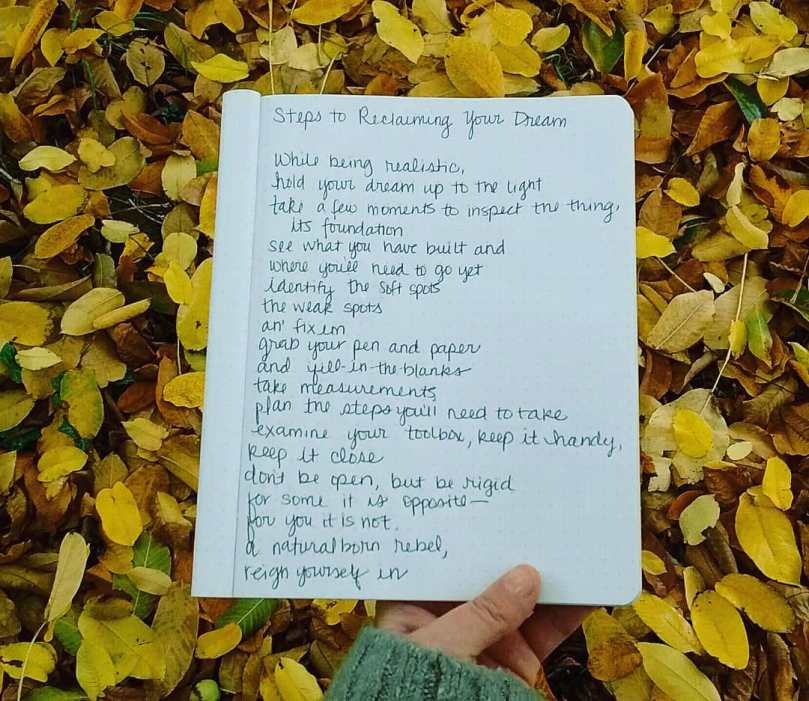 Steps to Reclaiming Your Dream
While being realistic,
hold your dream up to the light
take a few moments to inspect the thing,
its foundation
see what you have built and
where you'll need to go yet
identify the soft spots
the weak spots
an' fix em
grab your pen and paper
and fill-in-the-blanks
take measurements
plan the steps you'll need to take
examine your toolbox, keep it handy,
keep it close
don't be open, but be rigid
for some it is opposite—
for you it is not.
a natural born rebel,
reign yourself in